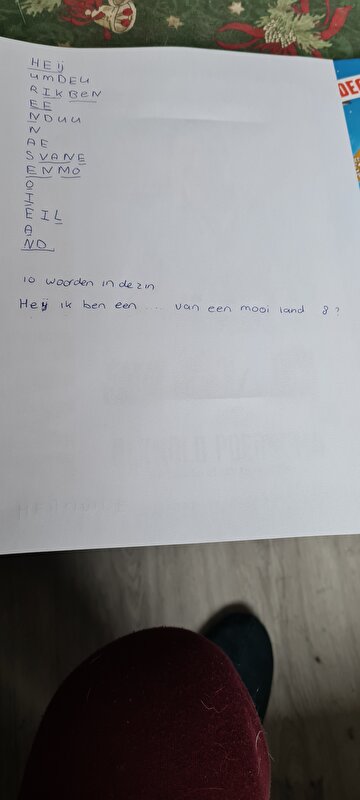 HEij
umDEU
RIKBEN
EE
NDUU
N
AE
SVANE
ENMO
O
I
EIL
A
ND
10 woorden in de zin
Heij ik ben een .... van een mooi land 8?